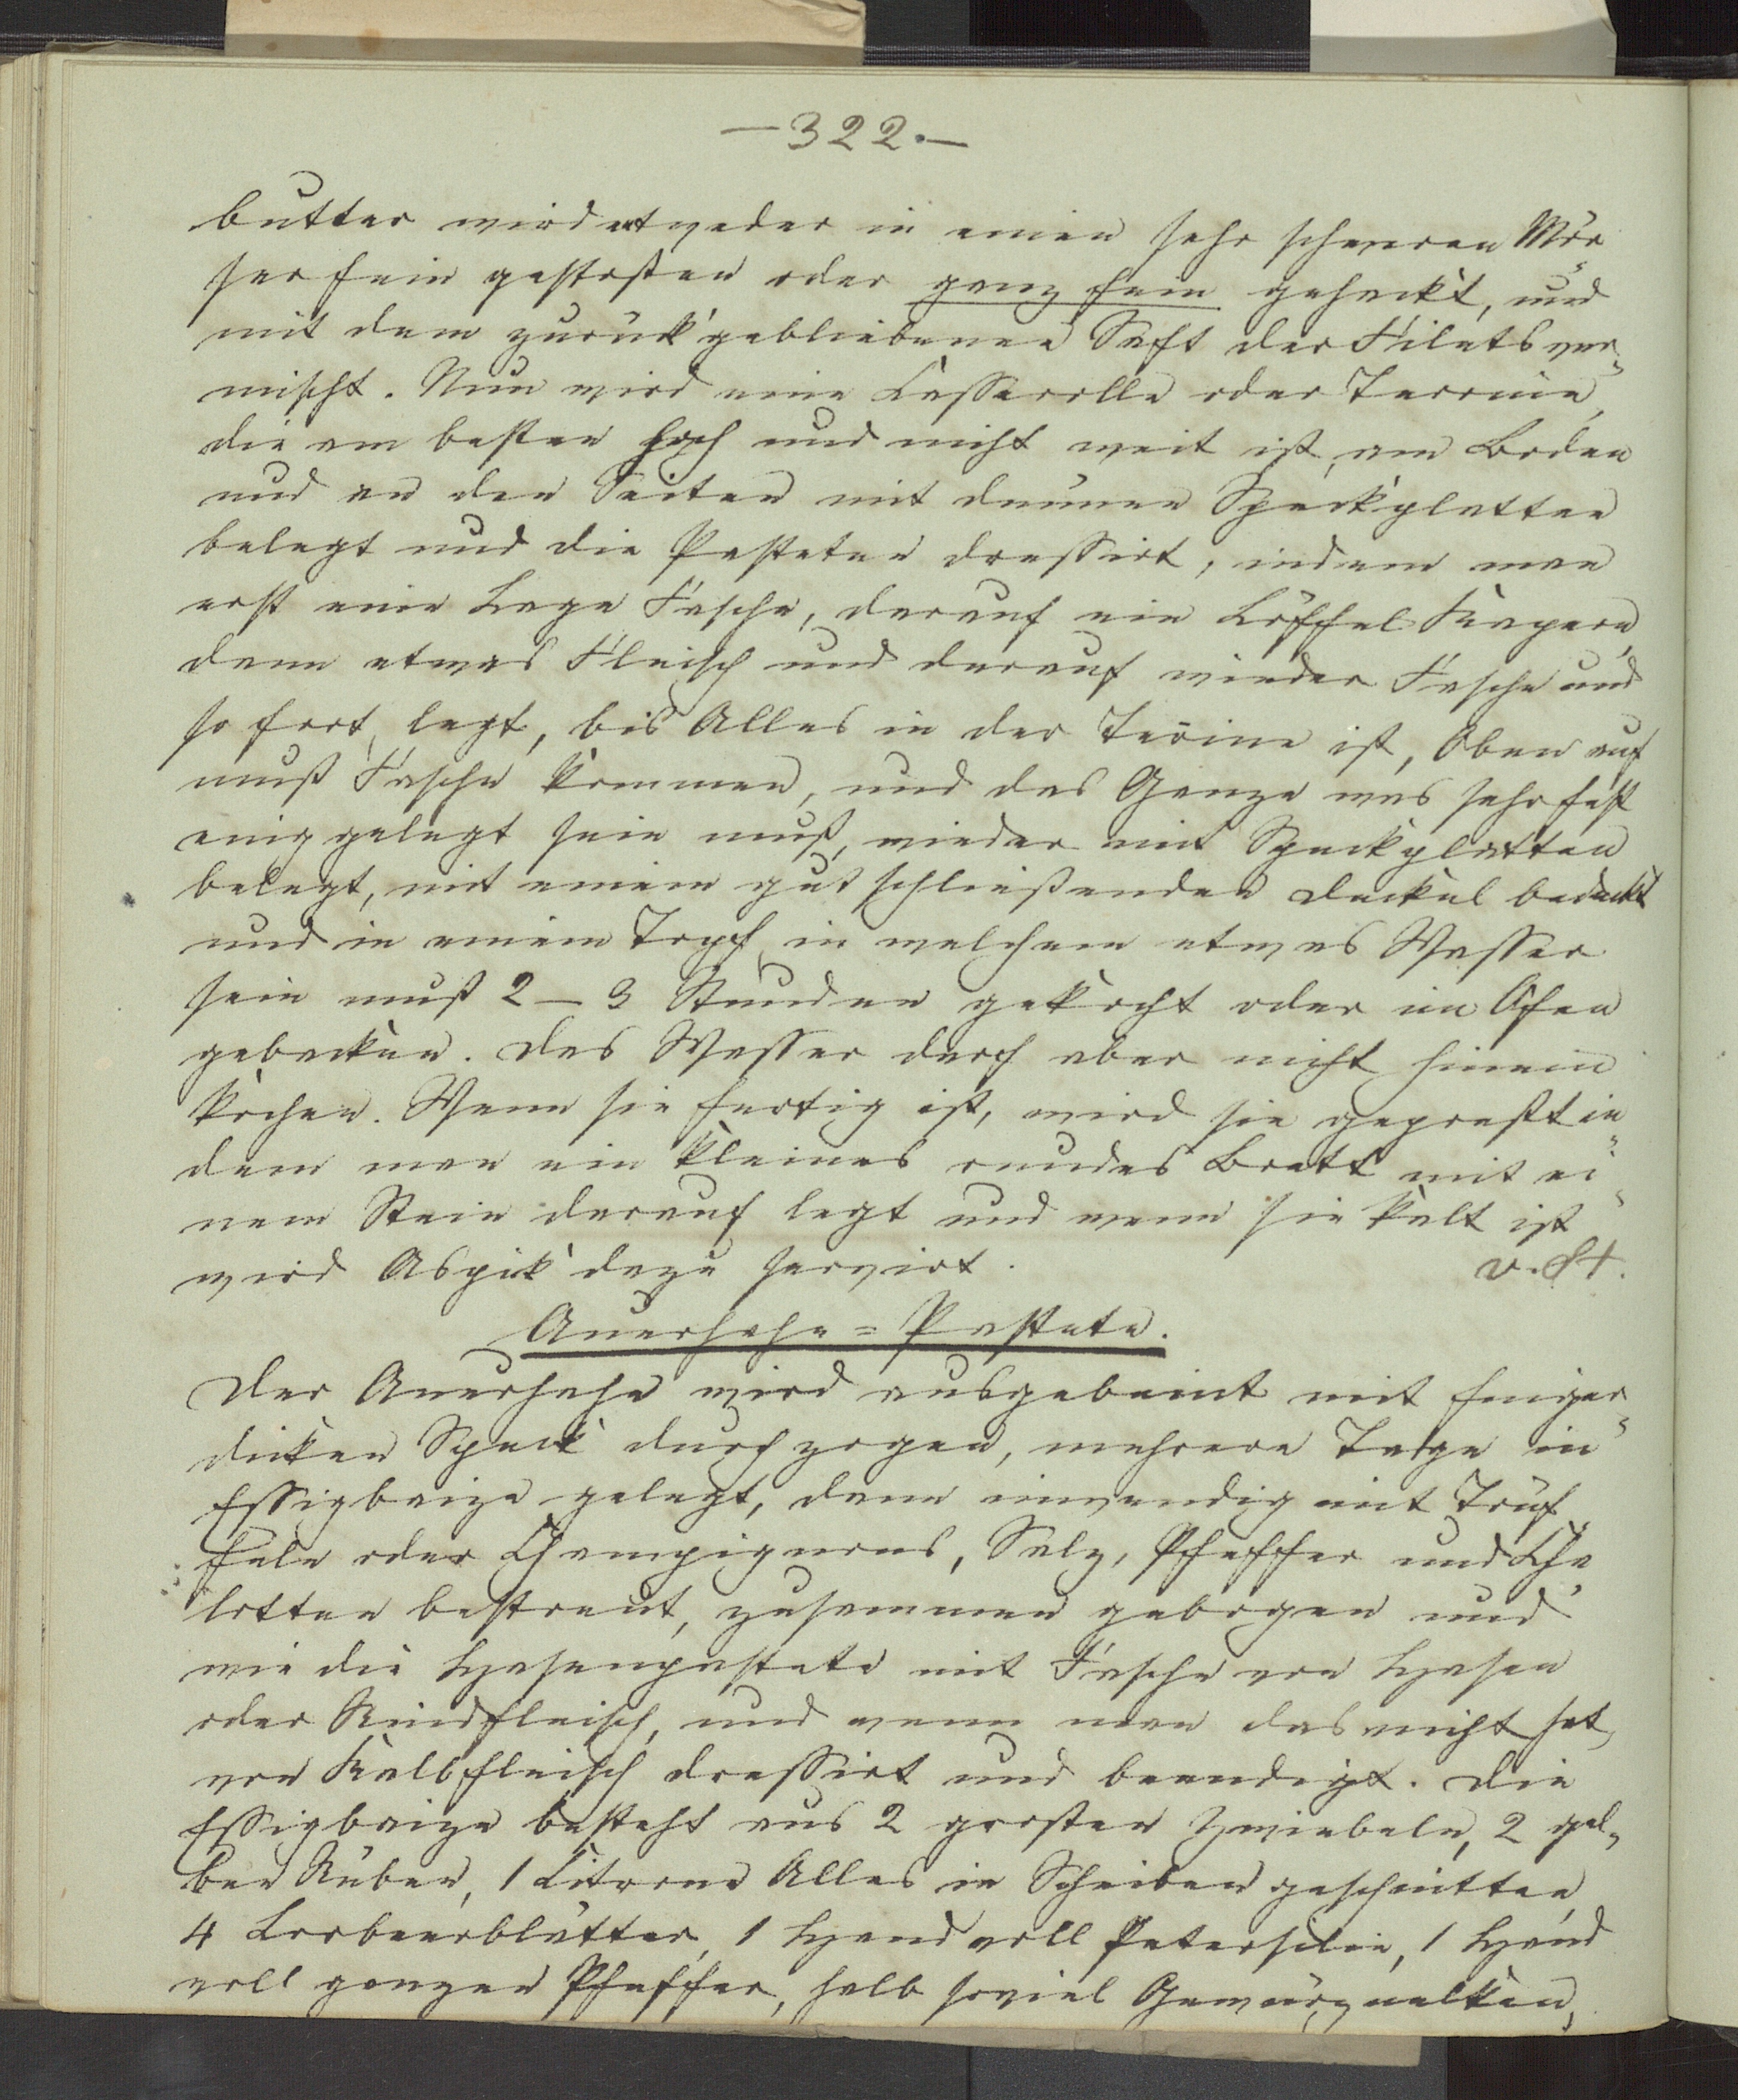 —322.—
butter wird entweder in einen sehr schweren Mör
ser fein gestoßen oder ganz fein gehackt, und
mit dem zurückgebliebenen Saft der Filets ver„
mischt. Nun wird eine Casserolle oder Terrine,
die am besten hoch und nicht weit ist, am Boden
und an den Seiten mit dünnen Speckplatten
belegt und die Pasteten dressirt, indem man
erst eine Lage Fasche, darauf ein Löffel Kapern,
dann etwas Fleisch und darauf wieder Fasche und
so fort, legt, bis Alles in der Terine ist, Oben auf
muß Fasche kommen, und das Ganze was sehr fest
eingelegt sein muß, wieder mit Speckplatten
belegt, mit einem gut schließenden Deckel bedeckt
und in einem Topf, in welchem etwas Wasser
sein muß 2 — 3 Stunden gekocht oder im Ofen
gebacken. Das Wasser darf aber nicht hinein
kochen. Wenn sie fertig ist, wird sie gepreßt in„
dem man ein kleines rundes Brett mit ei„
nem Stein darauf legt und wenn sie kalt ist
wird Aspik dazu servirt. v. St.
Auerhahn=Pastete.
Der Auerhahn wird ausgebeint mit finger„
dicken Speck durchzogen, mehrere Tage in
Essigbeize gelegt, dann inwendig mit Trüf„
feln oder Champignons, Salz, Pfeffer und Cha„
lotten bestreut, zusammen gebogen und
wie die Hasenpastete mit Fasche von Hasen
oder Rindfleisch, und wenn man das nicht hat,
von Kalbfleisch dressirt und beendigt. Die
Essigbeize besteht aus 2 großen Zwiebeln, 2 gel„
ben Rüben, 1 Citrone Alles in Scheiben geschnitten,
4 Lorbeerblätter, 1 Hand voll Petersilie, 1 Hand
voll ganzen Pfeffer, halb soviel Gewürznelken,